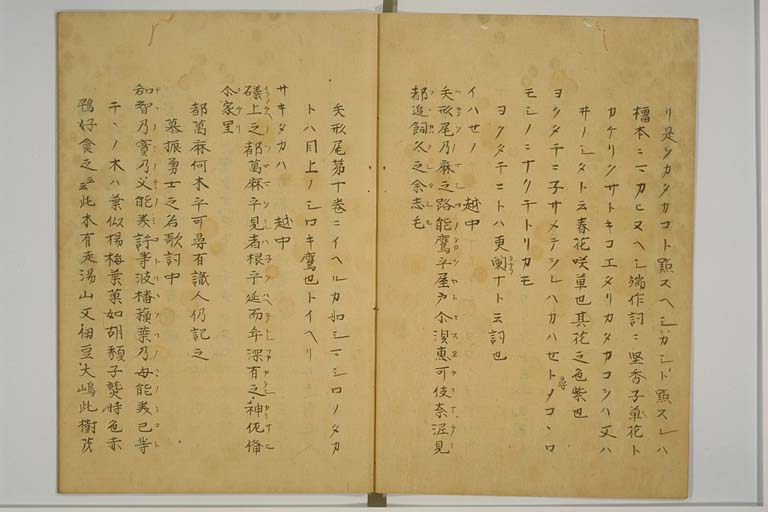 リ是シカタカコト點スヘシガシト點スレハ
橿本ニマカヒヌヘシ端作詞ニ堅香子草花ト
カケリ サトキコエタリカタカコシハ又ハ
井ノシタト云春花咲草也其花之色紫也
ヨクタチニ子サメテシレハカハセトメコヽロ
モシノニナクチトリカモ
ヨクタチニトハ更闌ナト云詞也
イハセノ 越中
矢形尾乃麻之路能鷹乎屋戸尓須恵可伎奈泥見
都追飼久之余志毛
矢形尾第十巻ニイヘルカ如シマシロノタカ
トハ目上ノシロキ鷹也トイヘリ
サキタカハ 越中
礒上之都萬麻乎見者根乎延而年深有之神佐備
尓家里
都萬麻何木乎可尋有識人仍記之
慕振勇士之名歌詞中
知智乃實乃父能美許等波播蘇葉乃母能美己等
チヽノ木ハ葉似楊梅葉菓如胡頽子熟時色赤
鴨好食之云々此木有走湯山又伊豆大嶋此樹茂